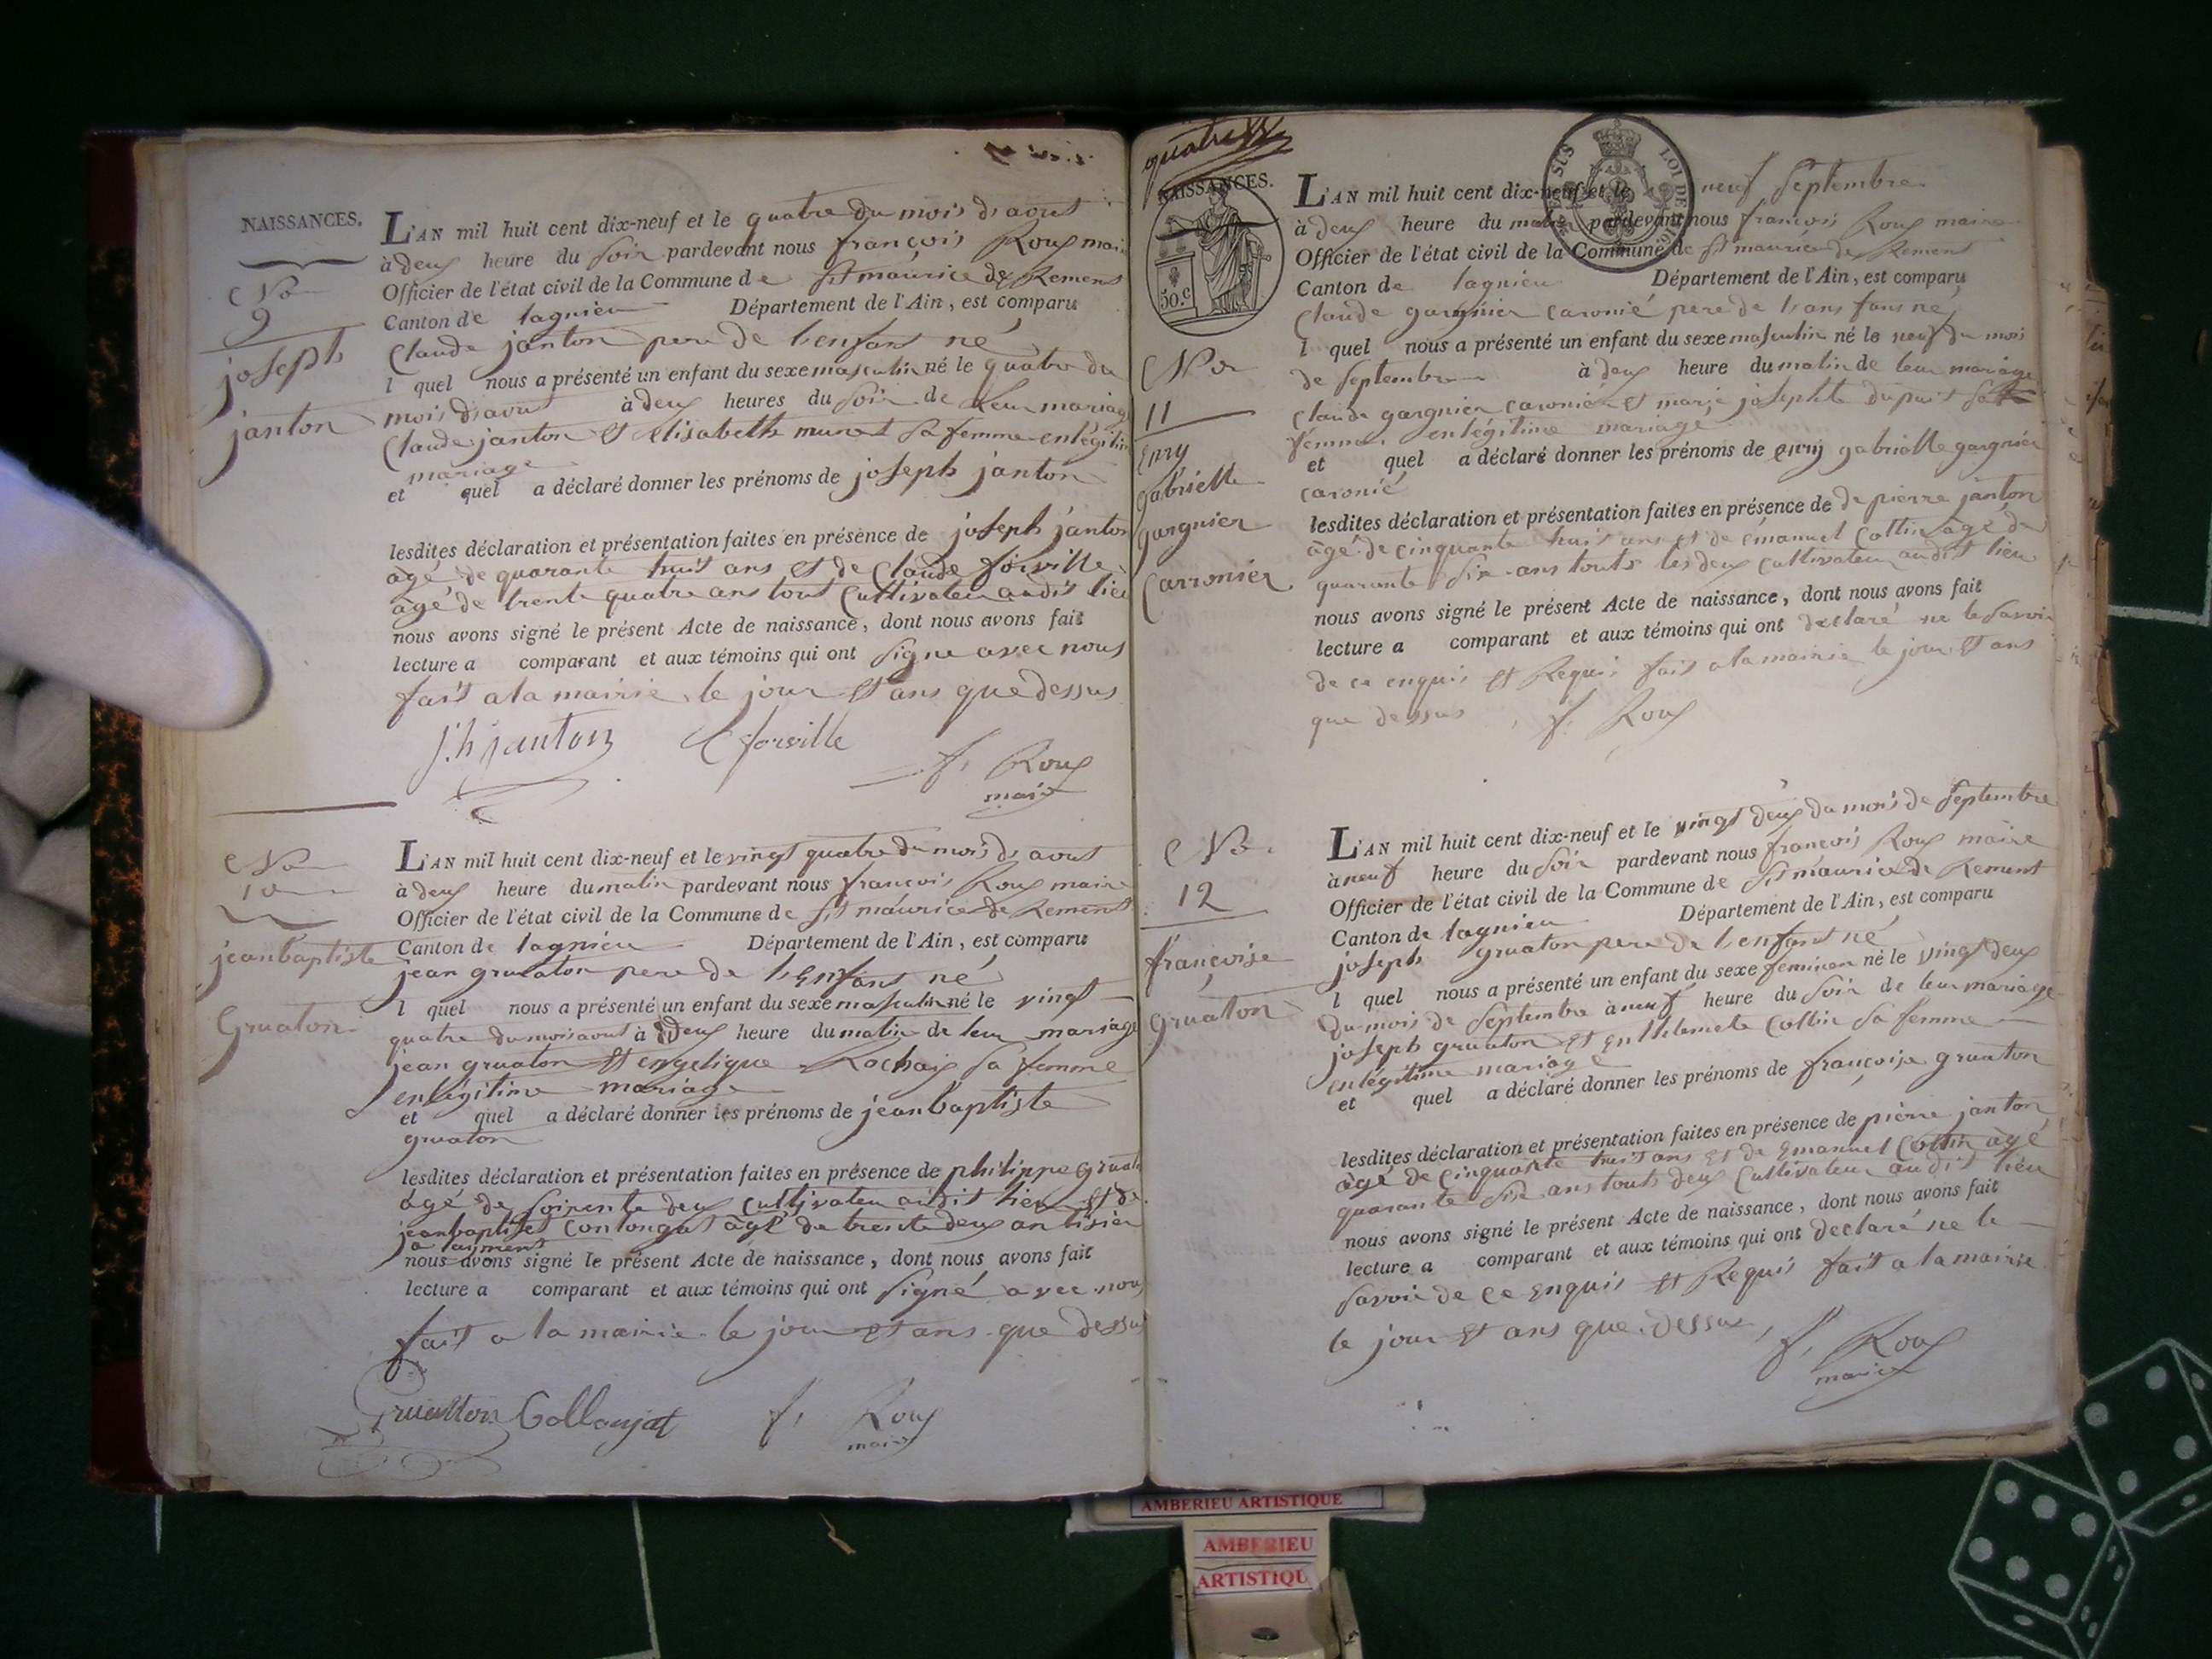 NAISSANCES.
No
9
joseph
janton
L'AN mil huit cent dix-neuf et le quatre du mois d'aout
à deux heure du soir pardevant nous françois Roux maire
Officier de l'état civil de la Commune de St maurice de Remens
Canton de lagnieu Département de l'Ain, est comparu
Claude janton pere de l'enfant né
l quel nous a présenté un enfant du sexe masculin né le quatre du
mois d'aout à deux heures du soir de leur mariage
Claude janton et Elisabeth munet sa femme en légitime
mariage
et quel a déclaré donner les prénoms de joseph janton
lesdites déclaration et présentation faites en présence de joseph janton
âgé de quarante huit ans et de Claude forville
âgé de trente quatre ans tout Cultivateur audit lieu
nous avons signé le présent Acte de naissance, dont nous avons fait
lecture a comparant et aux témoins qui ont signé avec nous
fait a la mairie le jour et ans que dessus
J.h janton C forville f, Roux
maire
No
10
jeanbaptiste
Gruaton
L'AN mil huit cent dix-neuf et le vingt quatre du mois d'aout
à deux heure du matin pardevant nous françois Roux maire
Officier de l'état civil de la Commune de St maurice de Remens
Canton de lagnieu Département de l'Ain, est comparu
jean gruaton pere de l'Enfant né
l quel nous a présenté un enfant du sexe masculin né le vingt
quatre du mois aout à deux heure du matin de leur mariage
jean gruaton et engelique Rochaix sa femme
en légitime mariage
et quel a déclaré donner les prénoms de jeanbaptiste
gruaton
lesdites déclaration et présentation faites en présence de philippe gruat
âgé de soixente deux Cultivateur audit lieu et de
jeanbaptiste âgé de trente deux an
nous avons signé le présent Acte de naissance, dont nous avons fait
lecture a comparant et aux témoins qui ont signé avec nous
fait a la mairie le jour et ans que dessus
Gruatton Collonjat f, Roux
maire
quatre
NAISSANCES.
50.c
No
11
Enry
gabrielle
gargnier
Carronier
L'AN mil huit cent dix-neuf et le neuf Septembre
à deux heure du matin pardevant nous francois Roux maire
Officier de l'état civil de la Commune de St maurice de Remens
Canton de lagnieu Département de l'Ain, est comparu
Claude gargnier caronié pere de né
l quel nous a présenté un enfant du sexe masculin né le neuf du mois
de Septembre à deux heure du matin de leur mariage
Claude gargnier caronier et marie josephte dupuit sa
femme en légitime mariage
et quel a déclaré donner les prénoms de enry gabrielle gargnier
caronié
lesdites déclaration et présentation faites en présence de de pierre janton
âgé de cinquante huit ans et de émanuel Cottin âgé de
quarante six ans touts les deux Cultivateur audit lieu
nous avons signé le présent Acte de naissance, dont nous avons fait
lecture a comparant et aux témoins qui ont declaré ne le savoir
de ce enquis et Requis fait a la mairie le jour et ans
que dessus f. Roux
No
12
françoise
gruaton
L'AN mil huit cent dix-neuf et le vingt deux du mois de Septembre
à neuf heure du soir pardevant nous francois Roux maire
Officier de l'état civil de la Commune de St maurice de Remens
Canton de lagnieu Département de l'Ain, est comparu
joseph gruaton pere de l'enfant né
l quel nous a présenté un enfant du sexe feminin né le vingt deux
du mois de Septembre à neuf heure du soir de leur mariage
joseph gruaton et Cottin sa femme
en légitime mariage
et quel a déclaré donner les prénoms de françoise gruaton
lesdites déclaration et présentation faites en présence de pierre janton
âgé de Cinquante huit ans et de Emanuel Cottin âgé
quarante six ans touts deux Cultivateur audit lieu
nous avons signé le présent Acte de naissance, dont nous avons fait
lecture a comparant et aux témoins qui ont declaré ne le
savoir de ce Enquis et Requis fait a la mairie
le jour et ans que dessus, f, Roux
maire
AMBERIEU ARTISTIQUE
AMBERIEU
ARTISTIQU